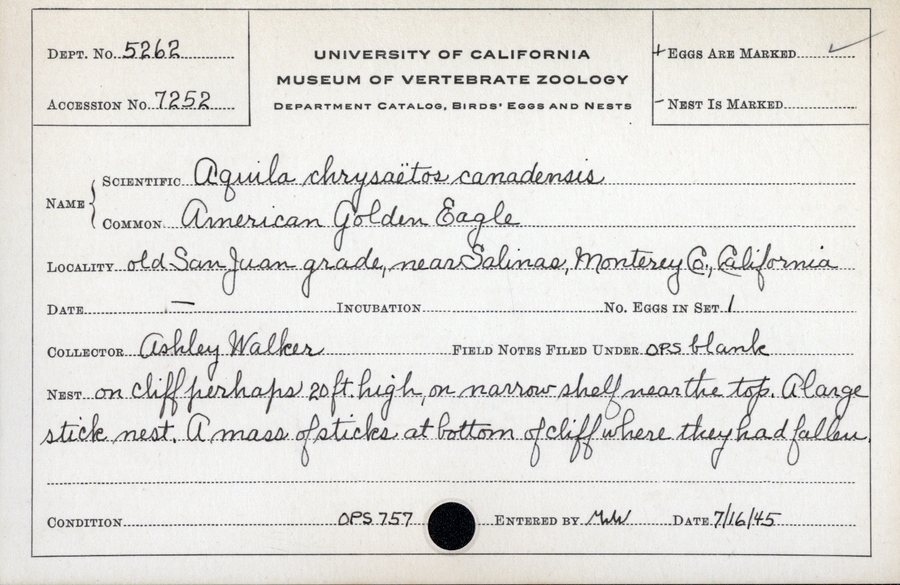 DEPT. NO. 5262
ACCESSION NO. 7252
UNIVERSITY OF CALIFORNIA
MUSEUM OF VERTEBRATE ZOOLOGY
DEPARTMENT CATALOG, BIRDS' EGGS AND NESTS
+ EGGS ARE MARKED ✓
- NEST IS MARKED
NAME { SCIENTIFIC Aquila chrysaëtos canadensis
COMMON American Golden Eagle
LOCALITY old San Juan grade, near Salinas, Monterey Co., California
DATE — INCUBATION NO. EGGS IN SET 1
COLLECTOR Ashley Walker FIELD NOTES FILED UNDER OPS blank
NEST on cliff perhaps 20 ft. high, on narrow shelf near the top. A large
stick nest. A mass of sticks at bottom of cliff where they had fallen.
CONDITION OPS 757 ENTERED BY DATE 7/16/45